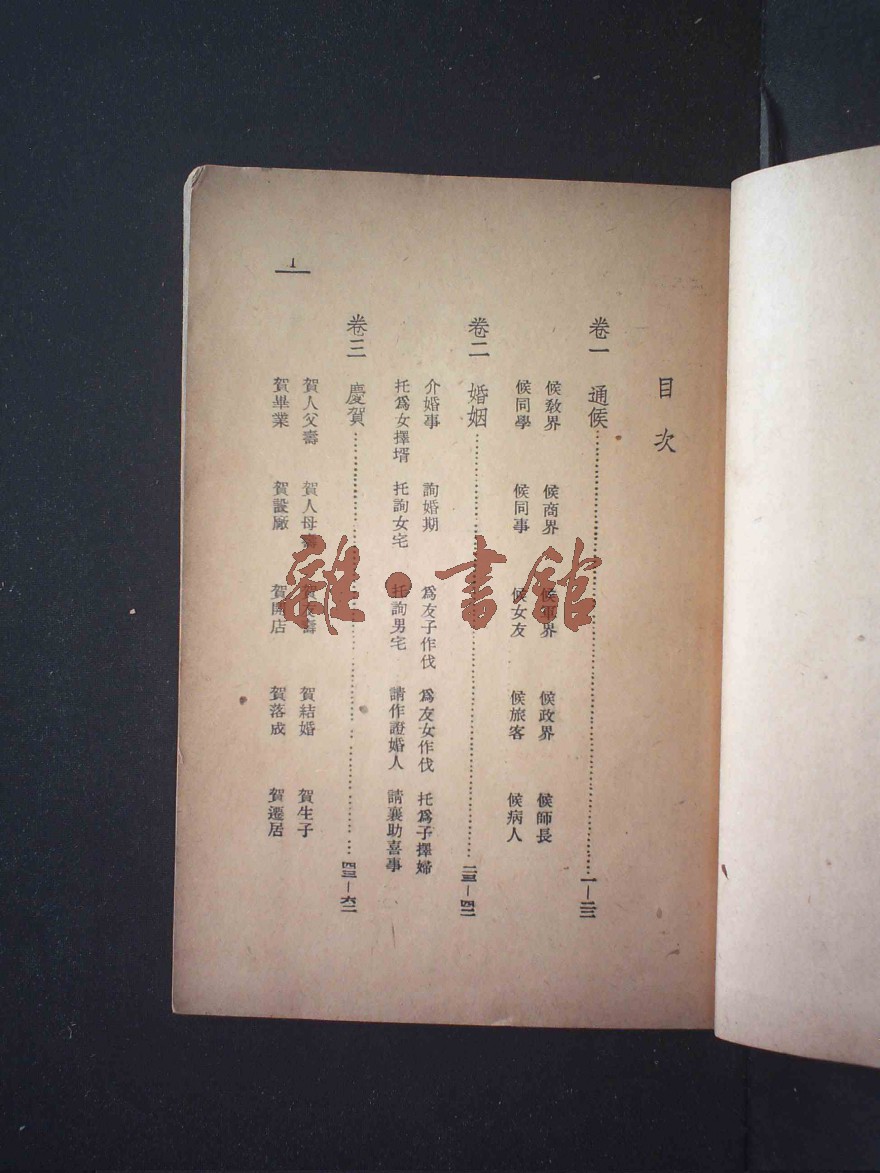 目次
卷一 通候……一—二二
候教界 候商界 候軍界 候政界 候師長
候同學 候同事 候女友 候旅客 候病人
卷二 婚姻……二三—四二
介婚事 詢婚期 爲友子作伐 爲友女作伐 托爲子擇婦
托爲女擇壻 托詢女宅 托詢男宅 請作證婚人 請襄助喜事
卷三 慶賀……四三—六二
賀人父壽 賀人母壽 賀友壽 賀結婚 賀生子
賀畢業 賀設廠 賀開店 賀落成 賀遷居
1
雜·書館